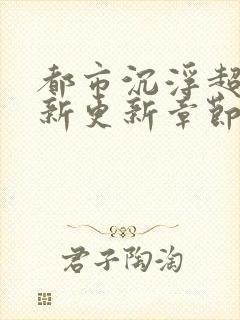 都市沉浮超
新更新章节
君子陶淘